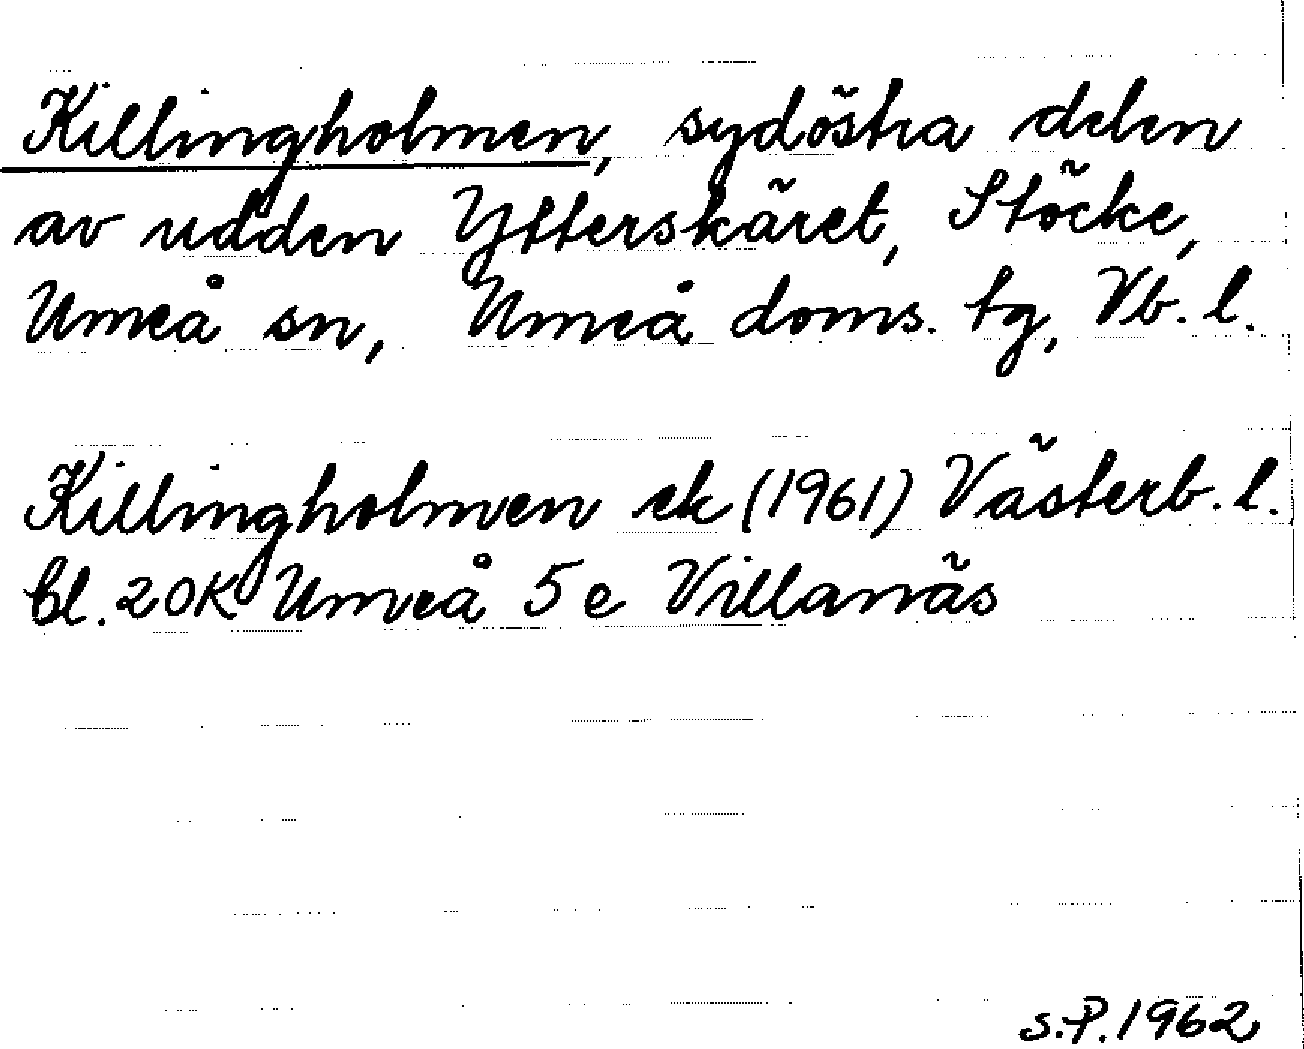 Killingholmen, sydöstra delen
av udden Ytterskäret, Stöcke,
Umeå sn, Umeå doms. tg, Vb. l.
Killingholmen ek (1961) Västerb. l.
bl. 20K Umeå 5e Villanäs
S.P. 1962